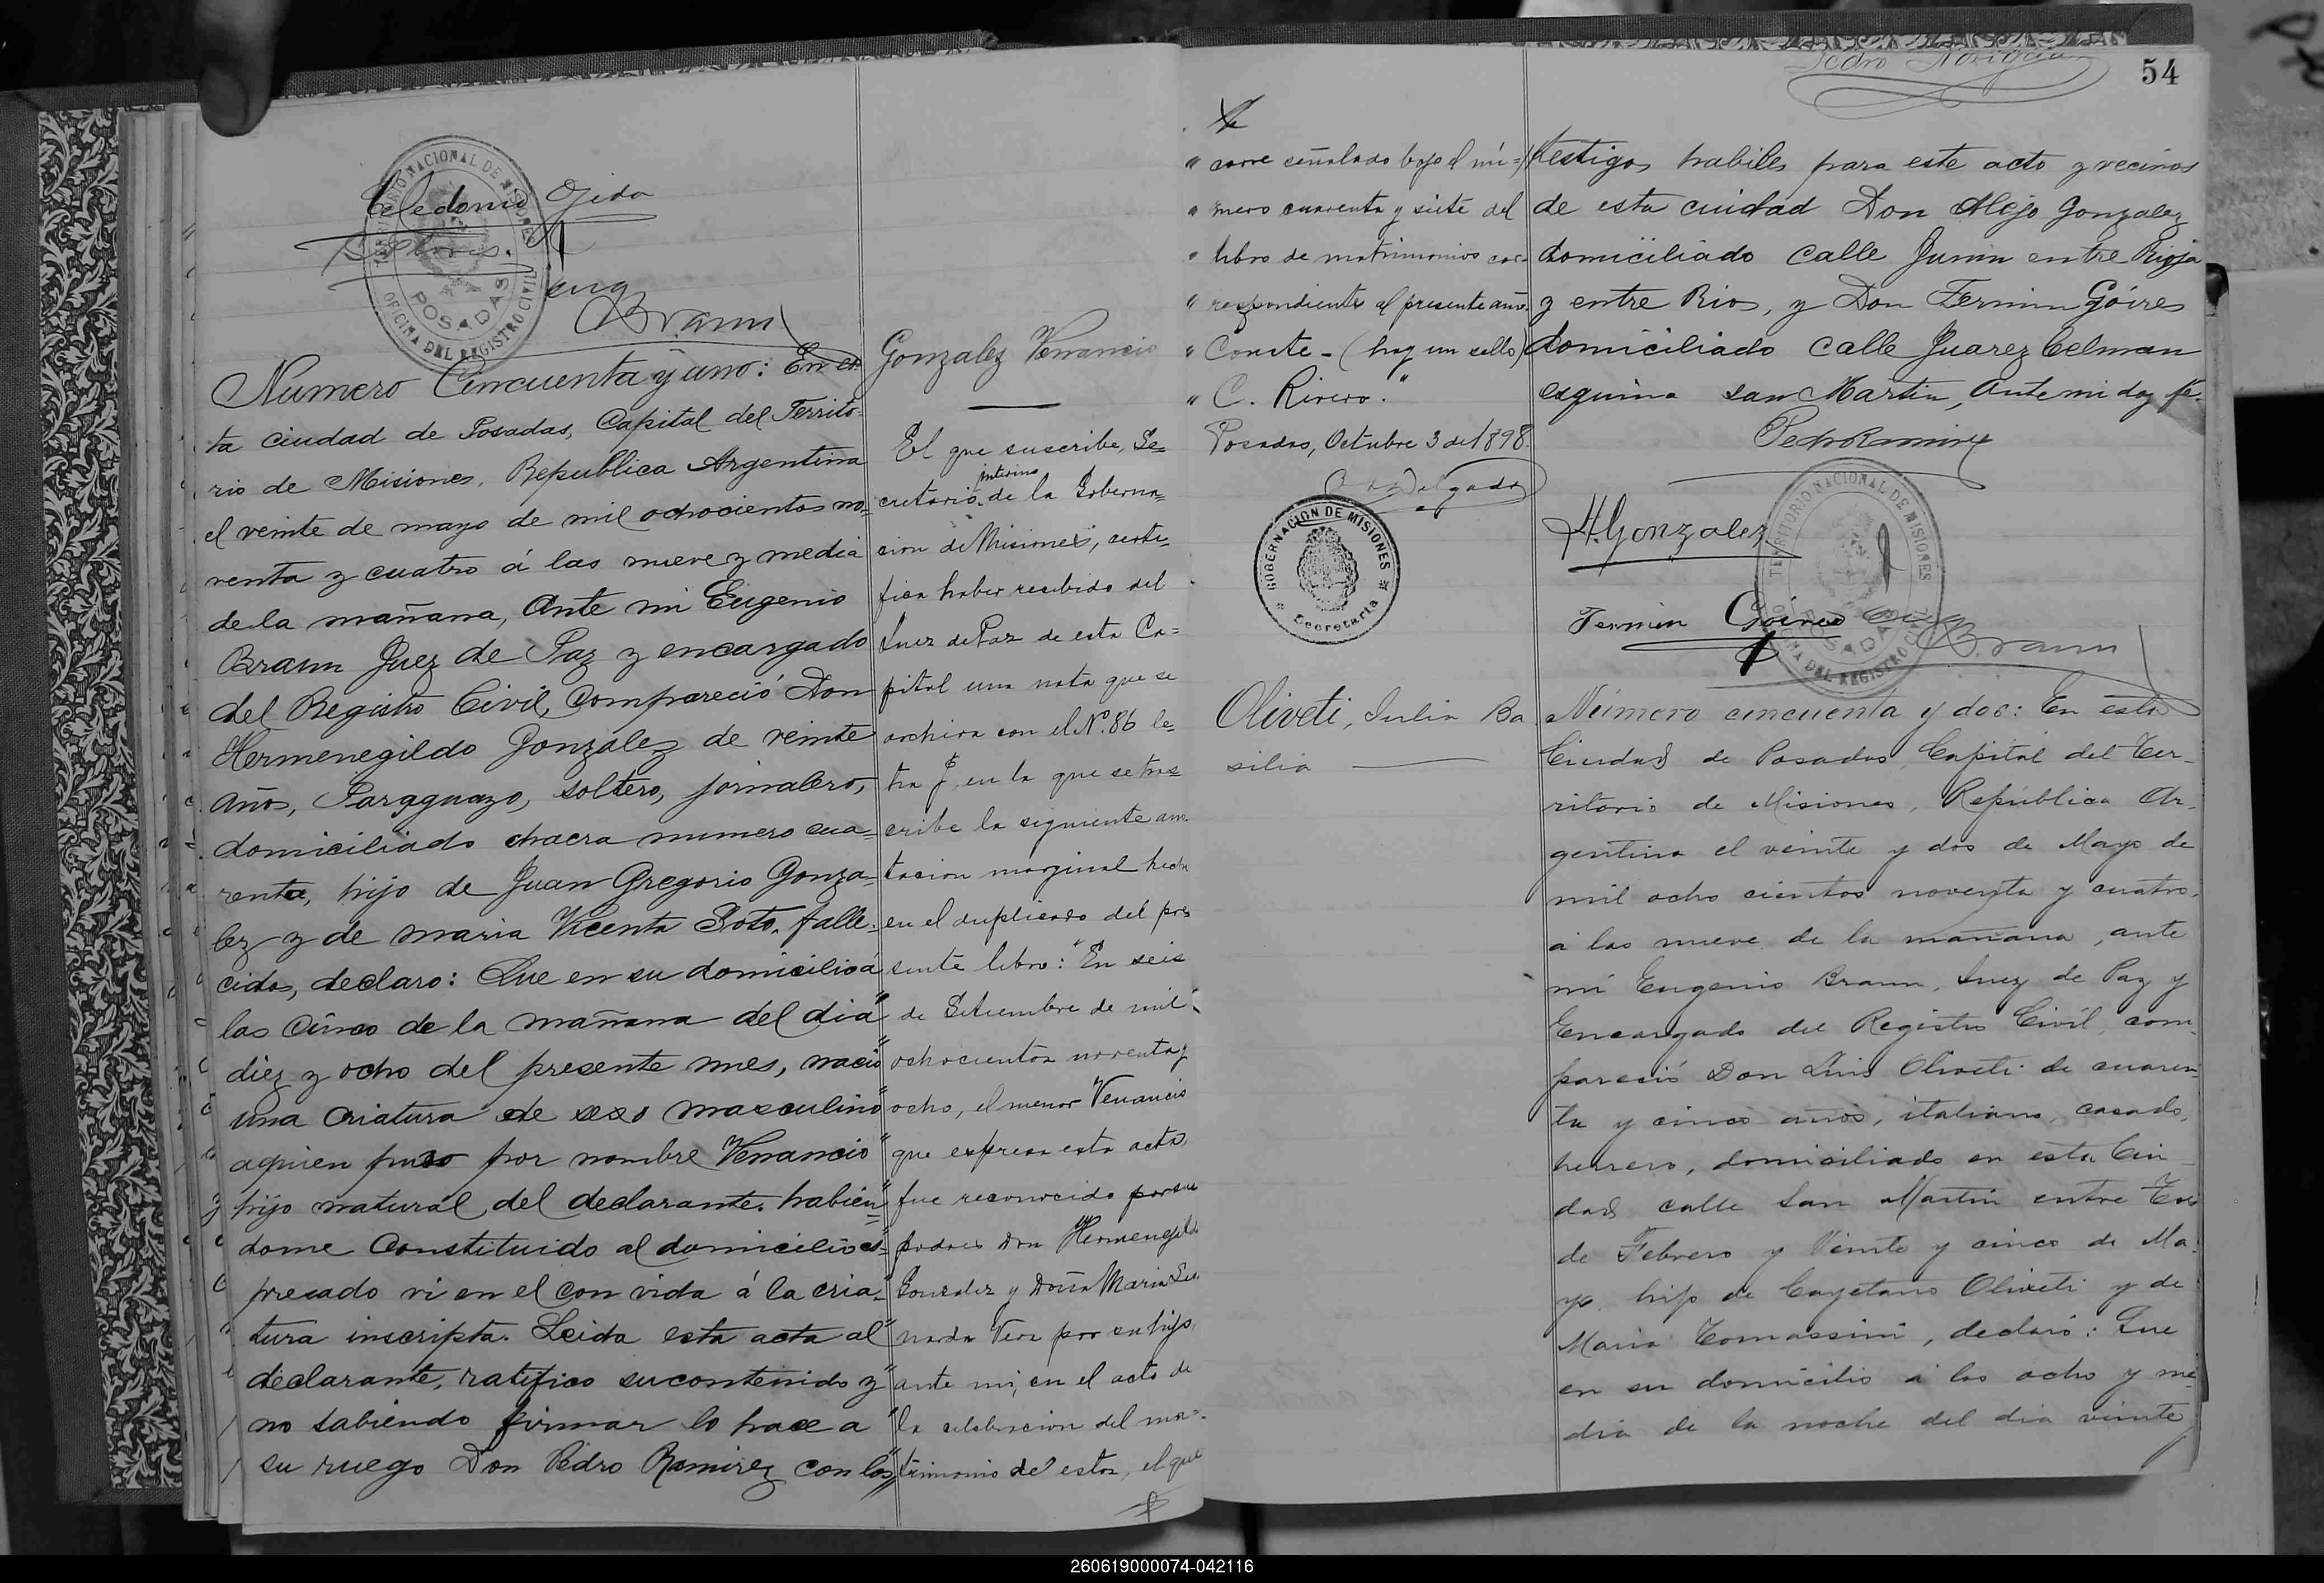 Celedonio Ojeda
Eug
Braun
TERRITORIO NACIONAL DE MISIONES
POSADAS
OFICINA DEL REGISTRO CIVIL
Numero Cincuenta y uno: En es-
ta ciudad de Posadas, Capital del Territo-
rio de Misiones, Republica Argentina
el veinte de mayo de mil ochocientos no-
venta y cuatro á las nueve y media
de la mañana, Ante mi Eugenio
Braun Juez de Paz y encargado
del Registro Civil, Compareció Don
Hermenegildo Gonzalez de veinte
años, Paraguayo, soltero, jornalero,
domiciliado chacra numero cua=
renta, hijo de Juan Gregorio Gonza-
lez y de maria Vicenta Soto, falle-
cidos, declaro: Que en su domicilio á
las Cinco de la mañana del dia
diez y ocho del presente mes, nació
una Criatura de sexo masculino
aquien puso por nombre Venancio
hijo natural del declarante. habien=
dome Constituido al domicilio es-
presado vi en el con vida á la cria-
tura inscripta. Leida esta acta al
declarante, ratifico su contenido y
no sabiendo firmar lo hace a
su ruego Don Pedro Ramirez con los
Gonzalez Venancio
El que suscribe, Se=
interino
cretario de la Goberna=
cion de Misiones, certi-
fica haber recibido del
Juez de Paz de esta Ca=
pital una nota que se
archiva con el Nº. 86 le-
tra J, en la que se tras=
cribe la siguiente ano
tacion marginal hecha
en el duplicado del pre
sente libro: "En seis
" de Setiembre de mil
" ochocientos noventa y
" ocho, el menor Venancio
" que expresa esta acta,
" fue reconocido por sus
" padres Don Hermenegildo
" Gonzalez y Doña Maria Leo
" narda Vera por su hijo,
" ante mi, en el acto de
" la celebracion del ma=
" trimonio de estos, el que
" corre señalado bajo el nú=
" mero cuarenta y siete del
" libro de matrimonios cor-
" respondiente al presente año.
" Conste - (hay un sello)
" C. Rivero."
Posadas, Octubre 3 de 1898.
GOBERNACION DE MISIONES
Secretaria
Oliveti, Julia Ba
silia
54
testigos habiles para este acto y vecinos
de esta ciudad Don Alejo Gonzalez
domiciliado calle Junin entre Rioja
y entre Rios, y Don Fermin Góires
domiciliado calle Juarez Celman
esquina san Martin, Ante mi doy fe.
Pedro Ramirez
A Gonzalez
Fermin Góires
Eug
Braun
TERRITORIO NACIONAL DE MISIONES
POSADAS
OFICINA DEL REGISTRO CIVIL
Número cincuenta y dos: En esta
Ciudad de Posadas, Capital del Ter-
ritorio de Misiones, República Ar-
gentina el veinte y dos de Mayo de
mil ocho cientos noventa y cuatro,
a las nueve de la mañana, ante
mi Eugenio Braun, Juez de Paz y
Encargado del Registro Civil, com-
pareció Don Luis Oliveti de cuaren-
ta y cinco años, italiano, casado,
herrero, domiciliado en esta Ciu-
dad calle San Martin entre Tres
de Febrero y Veinte y cinco de Ma-
yo, hijo de Cayetano Oliveti y de
Maria Tomassini, declaró: Que
en su domicilio a las ocho y me-
dia de la noche del dia veinte
260619000074-042116